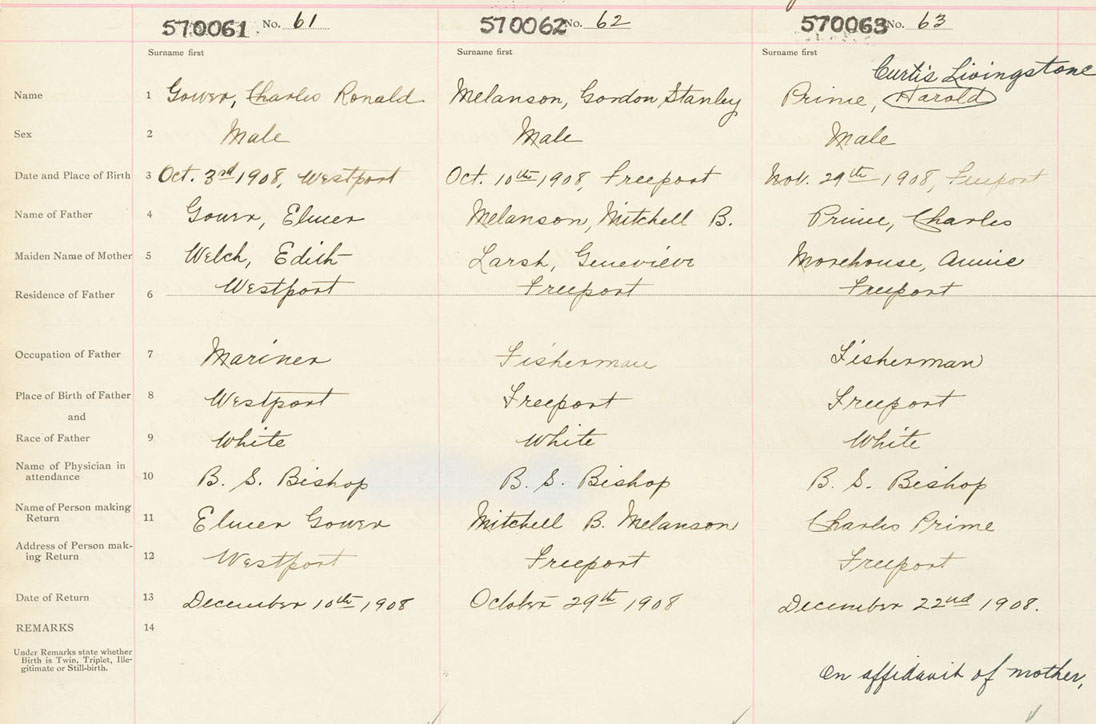 570061 No. 61 570062 No. 62 570063 No. 63
Surname first Surname first Surname first
Curtis Livingstone
Name 1 Gower, Charles Ronald Melanson, Gordon Stanley Prime, Harold
Sex 2 Male Male Male
Date and Place of Birth 3 Oct. 3rd 1908, Westport Oct. 10th 1908, Freeport Nov. 29th 1908, Freeport
Name of Father 4 Gower, Elmer Melanson, Mitchell B. Prime, Charles
Maiden Name of Mother 5 Welch, Edith Larsh, Genevieve Morehouse, Annie
Residence of Father 6 Westport Freeport Freeport
Occupation of Father 7 Mariner Fisherman Fisherman
Place of Birth of Father 8 Westport Freeport Freeport
and
Race of Father 9 White White White
Name of Physician in
attendance 10 B. S. Bishop B. S. Bishop B. S. Bishop
Name of Person making
Return 11 Elmer Gower Mitchell B. Melanson Charles Prime
Address of Person mak-
ing Return 12 Westport Freeport Freeport
Date of Return 13 December 10th 1908 October 29th 1908 December 22nd 1908.
REMARKS 14
Under Remarks state whether
Birth is Twin, Triplet, Ille-
gitimate or Still-birth.
On affidavit of mother,